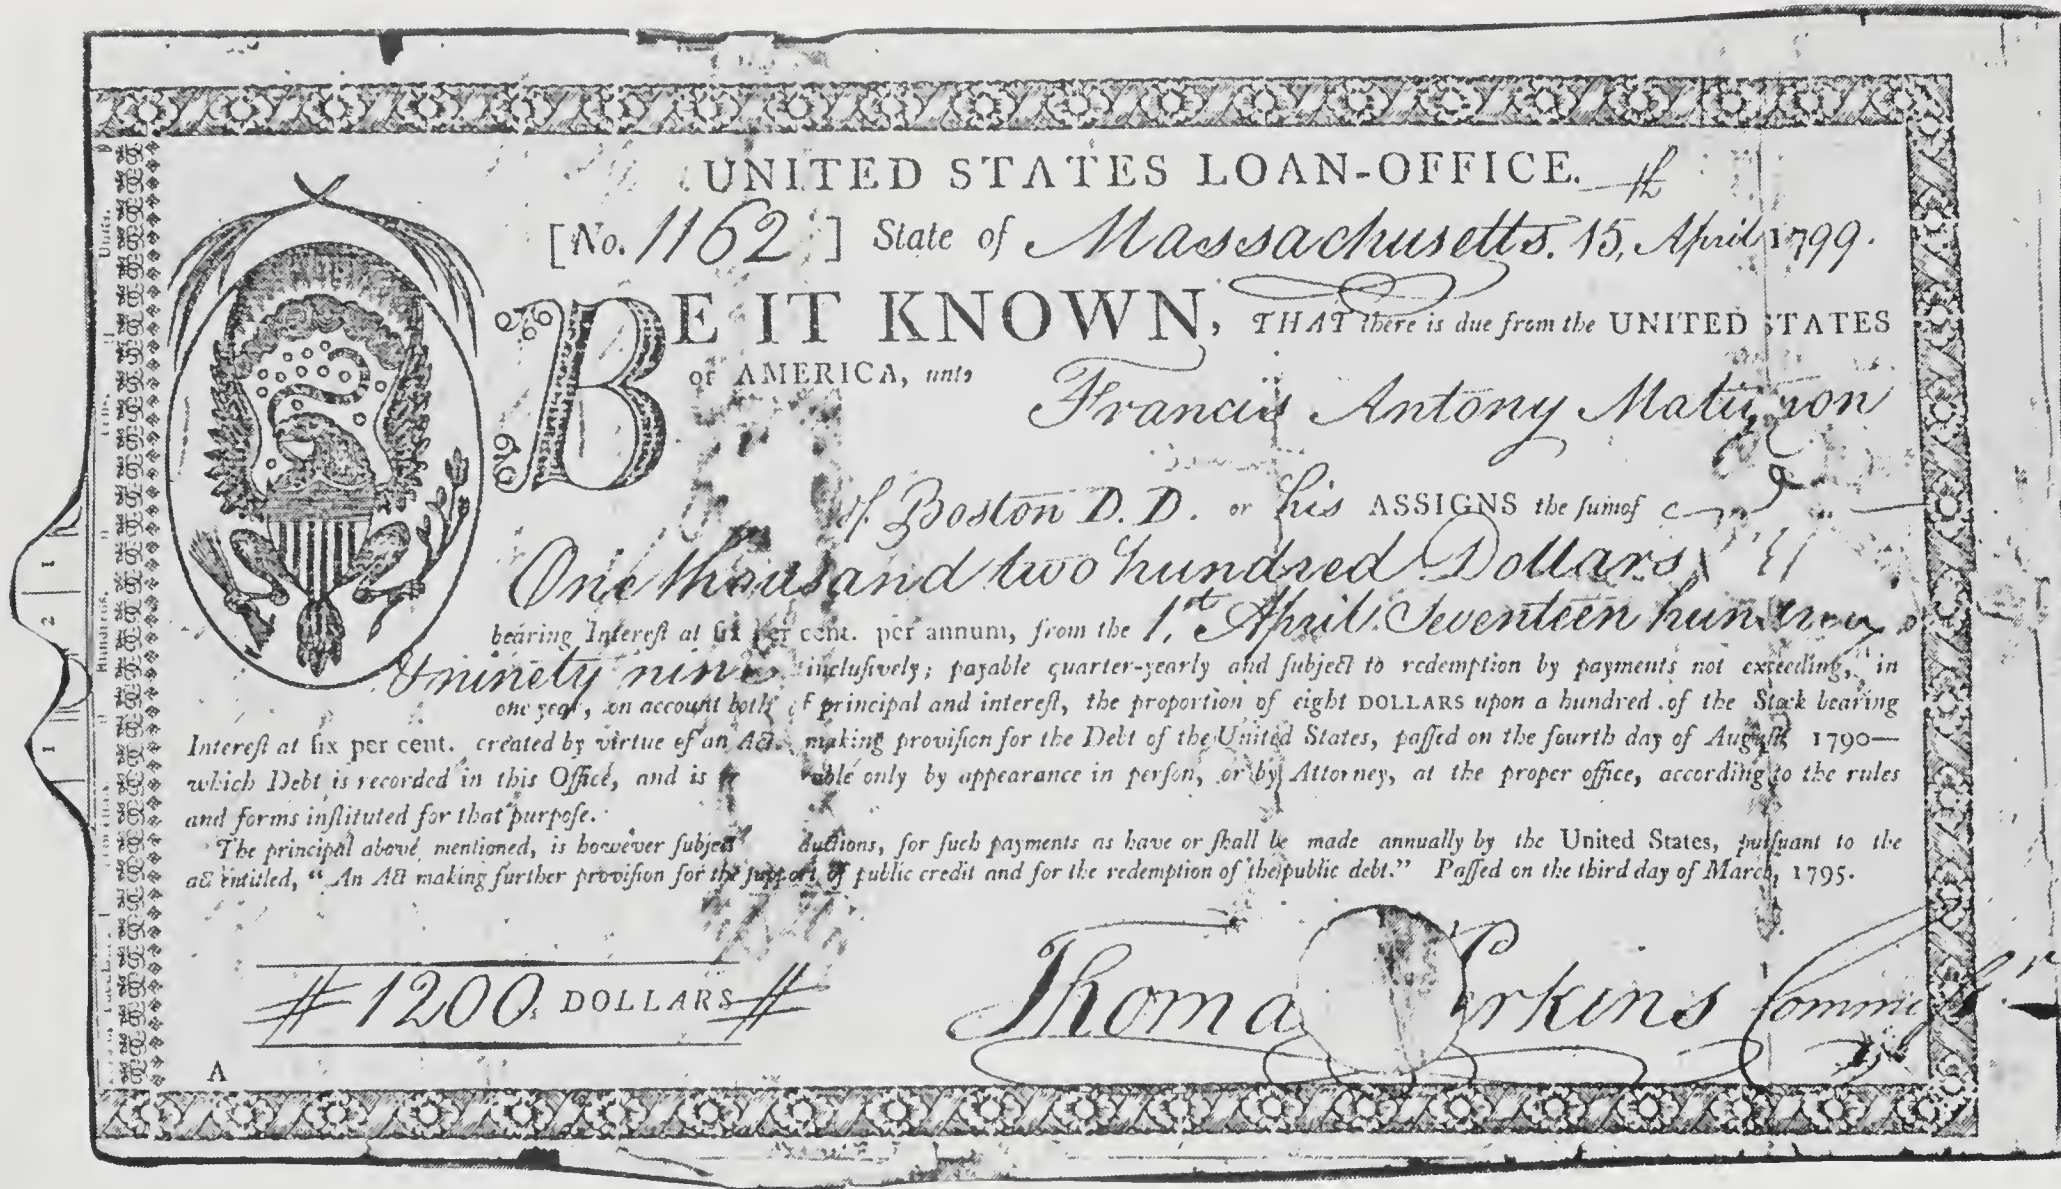 UNITED STATES LOAN-OFFICE.
[No. 1162] State of Massachusetts. 15,th April 1799.
BE IT KNOWN, THAT there is due from the UNITED STATES
of AMERICA, unto Francis Antony Matignon
of Boston D. D. or his ASSIGNS the sum of
One thousand two hundred Dollars,
bearing Interest at six per cent. per annum, from the 1,st April Seventeen hundred
& ninety nine inclusively; payable quarter-yearly and subject to redemption by payments not exceeding, in
one year, on account both of principal and interest, the proportion of eight DOLLARS upon a hundred of the Stock bearing
Interest at six per cent. created by virtue of an Act making provision for the Debt of the United States, passed on the fourth day of August, 1790—
which Debt is recorded in this Office, and is rable only by appearance in person, or by Attorney, at the proper office, according to the rules
and forms instituted for that purpose.
The principal above mentioned, is however subject ductions, for such payments as have or shall be made annually by the United States, pursuant to the
act entitled, "An Act making further provision for the support of public credit and for the redemption of the public debt." Passed on the third day of March, 1795.
# 1200 DOLLARS #
Thoma erkins
A